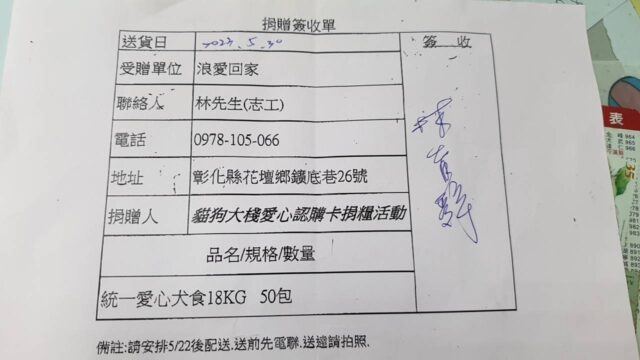 捐贈簽收單
送貨日 2023.5.30 簽 收
受贈單位 浪愛回家
聯絡人 林先生(志工)
電話 0978-105-066
地址 彰化縣花壇鄉鑛底巷26號
捐贈人 貓狗大棧愛心認購卡捐糧活動
品名/規格/數量
統一愛心犬食18KG 50包
備註:請安排5/22後配送.送前先電聯.送達請拍照.
表